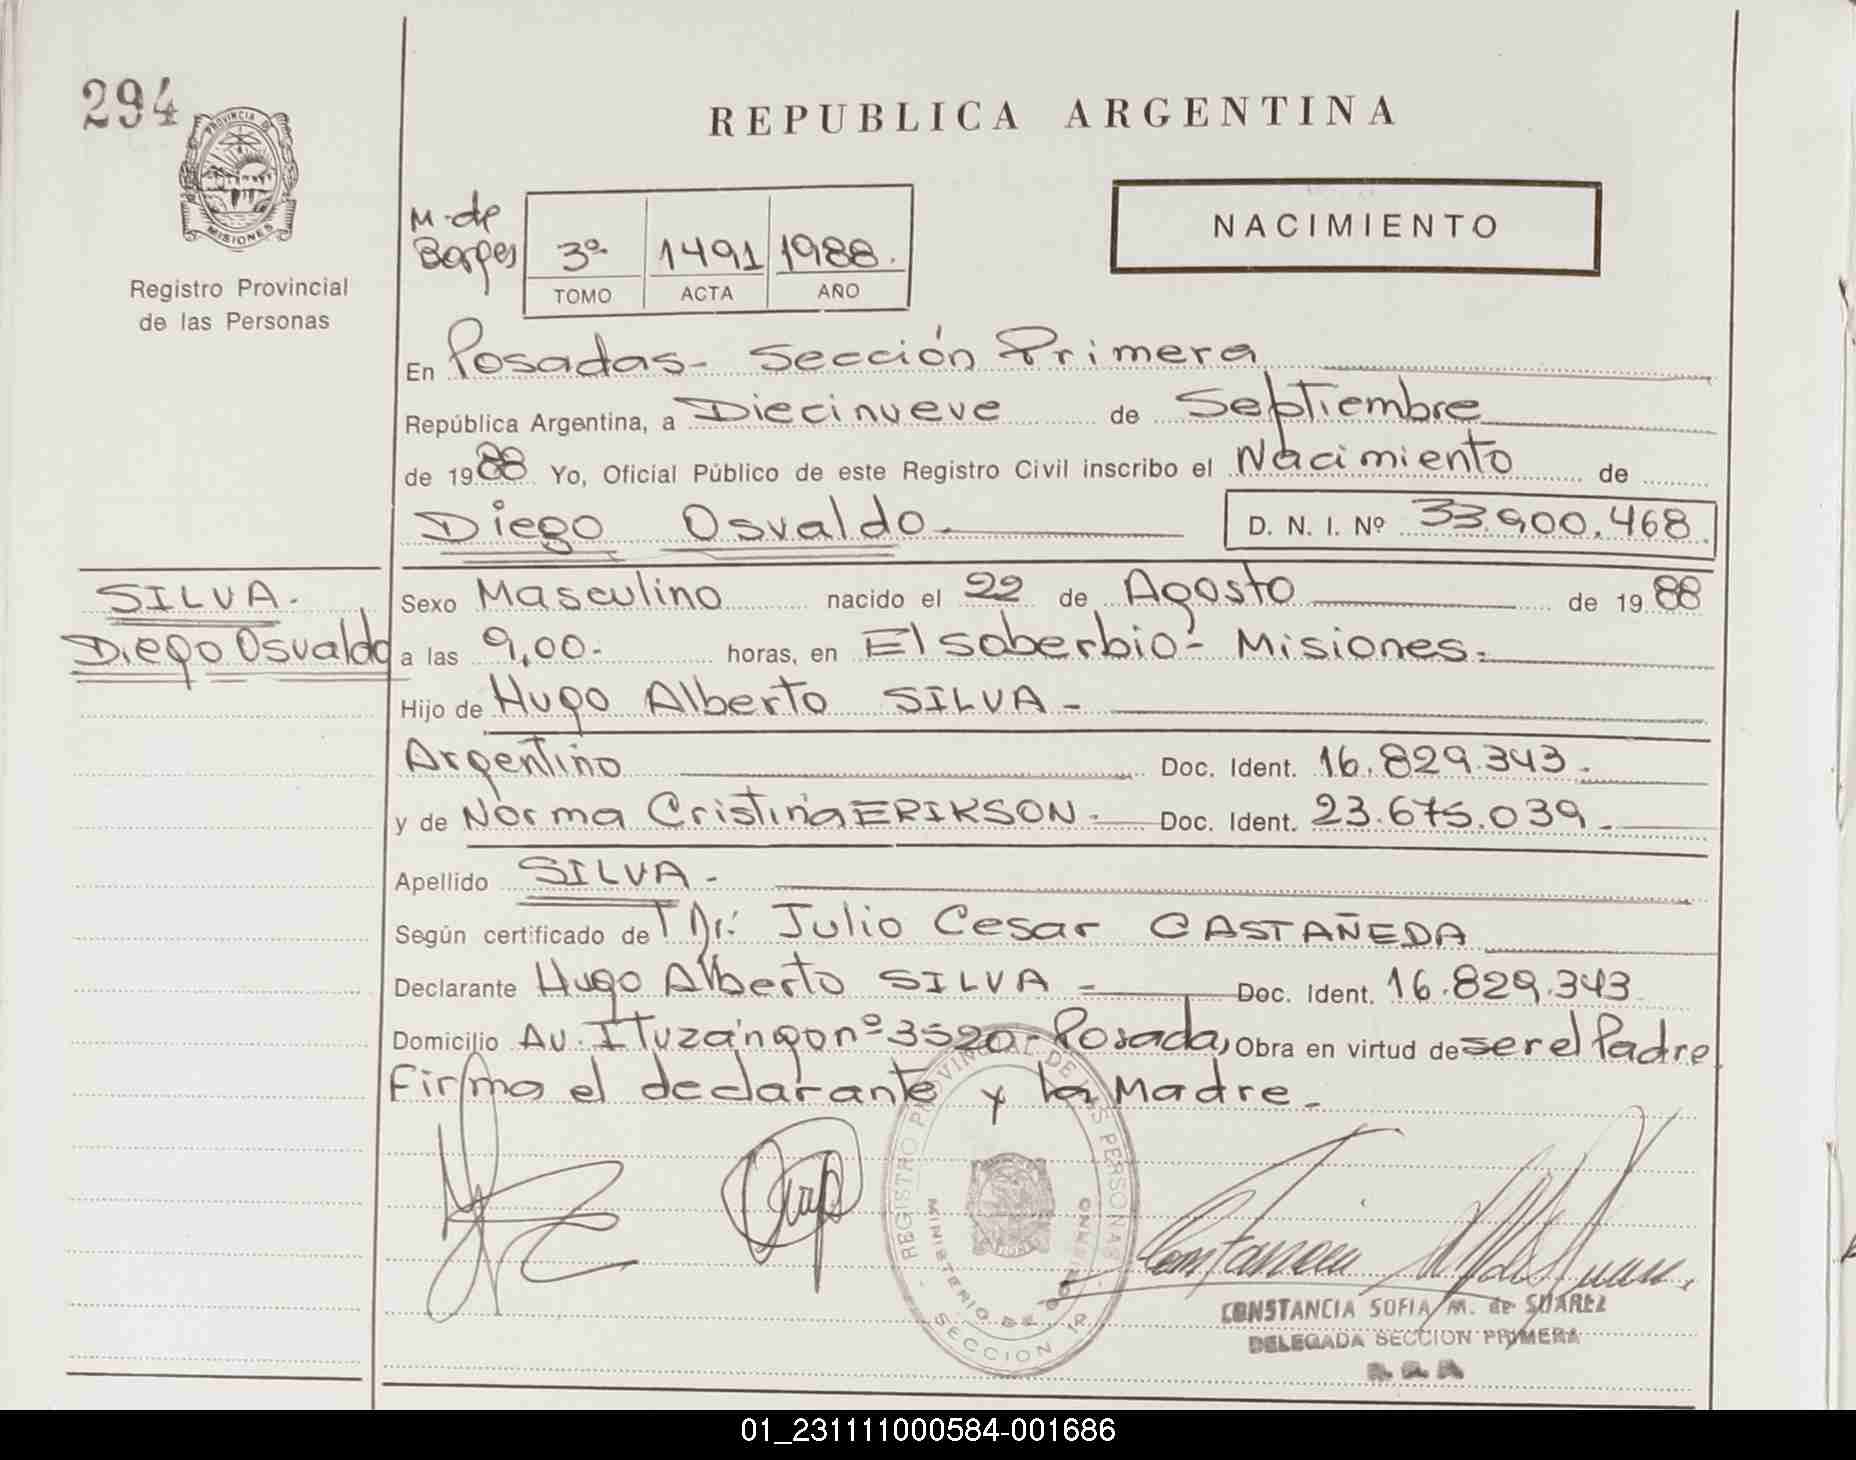 294
PROVINCIA DE
MISIONES
Registro Provincial
de las Personas
REPUBLICA ARGENTINA
NACIMIENTO
M. de
Borges
3º 1491 1988.
TOMO ACTA AÑO
En Posadas- Sección Primera
República Argentina, a Diecinueve de Septiembre
de 1988 Yo, Oficial Público de este Registro Civil inscribo el Nacimiento de
Diego Osvaldo.
D. N. I. Nº 33.900.468.
SILVA.
Diego Osvaldo
Sexo Masculino nacido el 22 de Agosto de 1988
a las 9,00.- horas, en El soberbio- Misiones.-
Hijo de Hugo Alberto SILVA -
Argentino Doc. Ident. 16.829.343.
y de Norma Cristina ERIKSON.- Doc. Ident. 23.675.039.
Apellido SILVA -
Según certificado del Dr. Julio Cesar CASTAÑEDA
Declarante Hugo Alberto SILVA - Doc. Ident. 16.829.343
Domicilio Av. Ituzaingo nº 3520- Posadas, Obra en virtud de ser el Padre
Firma el declarante y la Madre.-
REGISTRO PROVINCIAL DE LAS PERSONAS
MINISTERIO DE GOBIERNO
SECCION 1ª
CONSTANCIA SOFIA M. de SUAREZ
DELEGADA SECCION PRIMERA
01_231111000584-001686